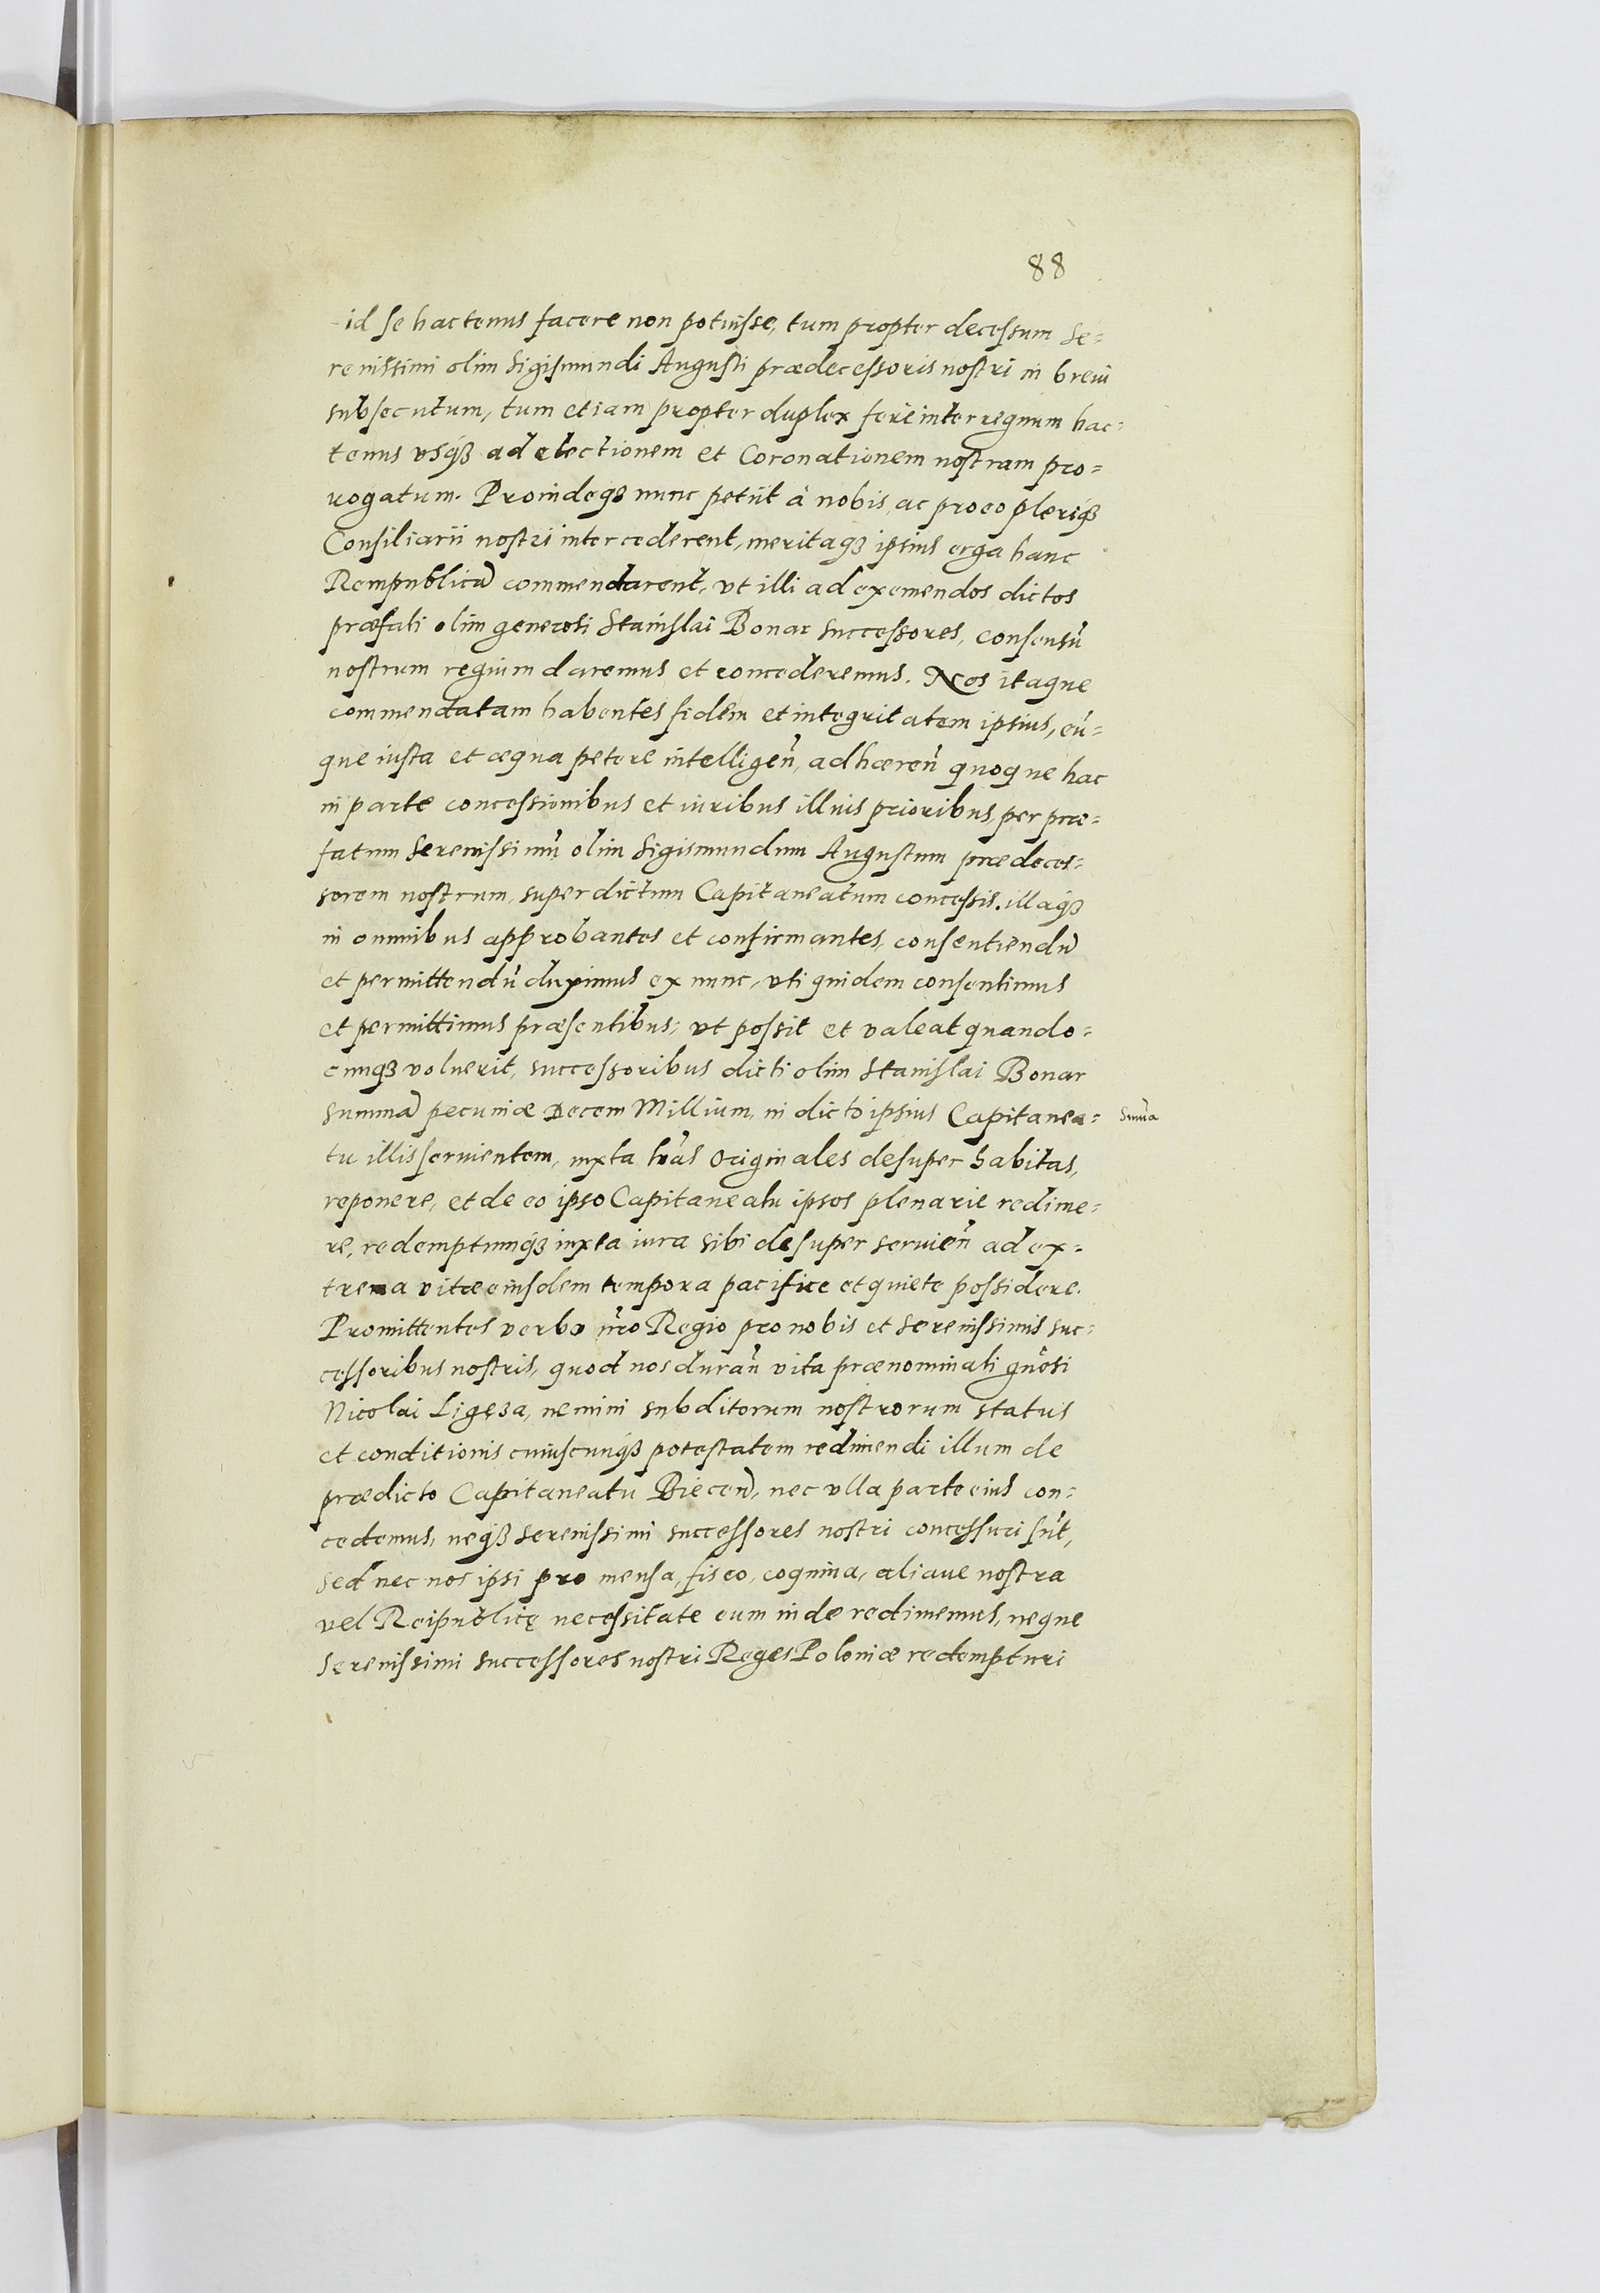 88
id se hactenus facere non potuisse, tum propter decessum Se=
renissimi olim Sigismundi Augusti prædecessoris nostri in breui
subsecutum, tum etiam propter duplex ferè interregnum hac=
tenus vsq́ꝫ ad electionem et Coronationem nostram pro=
rogatum. Proindeqꝫ nunc petiit à nobis, ac pro eo pleriq́ꝫ
Consiliarii nostri intercederent, meritaqꝫ ipsius erga hanc
Rempublicā commendarent, vt illi ad eximendos dictos
præfati olim generosi Stanislai Bonar successores, consensū
nostrum regium daremus et concederemus. Nos itaque
commendatam habentes fidem et integritatem ipsius, eū=
que iusta et æqua petere intelligen̄, adhæren̄ quoque hac
in parte concessionibus et iuribus illius prioribus, per præ=
fatum Serenissimū olim Sigismundum Augustum prædeces=
sorem nostrum, super dictum Capitaneatum concessis. illaq́ꝫ
in omnibus approbantes et confirmantes, consentiendū
et permittendū duximus ex nunc, vti quidem consentimus
et permittimus præsentibus, vt possit et valeat quando=
cunqꝫ voluerit, successoribus dicti olim Stanislai Bonar
summā pecuniæ Decem Millium, in dicto ipsius Capitanea=
Sum̄a
tu illis seruientem, iuxta lr̄as Originales desuper habitas,
reponere, et de eo ipso Capitaneatu ipsos plenarie redime=
re, redemptumq́ꝫ iuxta iura sibi desuper seruien̄ ad ex=
trema vitæ eiusdem tempora pacifice et quiete possidere.
Promittentes verbo nr̄o Regio pro nobis et Serenissimis suc=
cessoribus nostris, quod nos duran̄ vita prænominati gn̄osi
Nicolai Ligęza, nemini subditorum nostrorum status
et conditionis cuiuscunq́ꝫ potestatem redimendi illum de
prædicto Capitaneatu Biecen̄, nec vlla parte eius con=
cedemus, neq́ꝫ Serenissimi successores nostri concessuri sūt,
sed nec nos ipsi pro mensa, fisco, coquina, aliaue nostra
vel Reipublicę necessitate eum inde redimemus, neque
Serenissimi successores nostri Reges Poloniæ redempturi